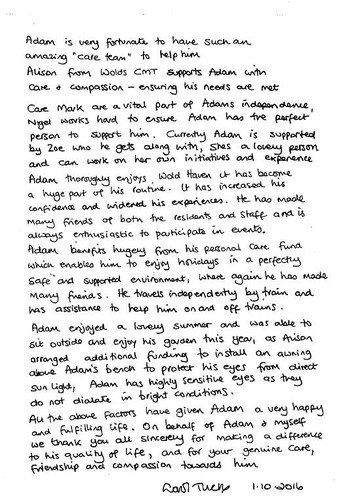 Adam is very fortunate to have such an
amazing "care team" to help him
Alison from Wolds CMT supports Adam with
care & compassion – ensuring his needs are met
Care Mark are a vital part of Adams independence,
Nigel works hard to ensure Adam has the perfect
person to support him. Currently Adam is supported
by Zoe who he gets along with, shes a lovely person
and can work on her own initiatives and experience
Adam thoroughly enjoys Wold Haven it has become
a huge part of his routine. It has increased his
confidence and widened his experiences. He has made
many friends of both the residents and staff and is
always enthusiastic to participate in events.
Adam benefits hugely from his personal care fund
which enables him to enjoy holidays in a perfectly
safe and supported environment, where again he has made
many friends. He travels independently by train and
has assistance to help him on and off trains.
Adam enjoyed a lovely summer and was able to
sit outside and enjoy his garden this year, as Alison
arranged additional funding to install an awning
above Adam's bench to protect his eyes from direct
sun light, Adam has highly sensitive eyes as they
do not dialate in bright conditions.
All the above factors have given Adam a very happy
and fulfilling life. On behalf of Adam & myself
we thank you all sincerely for making a difference
to his quality of life, and for your genuine care,
friendship and compassion towards him
1.10 2016